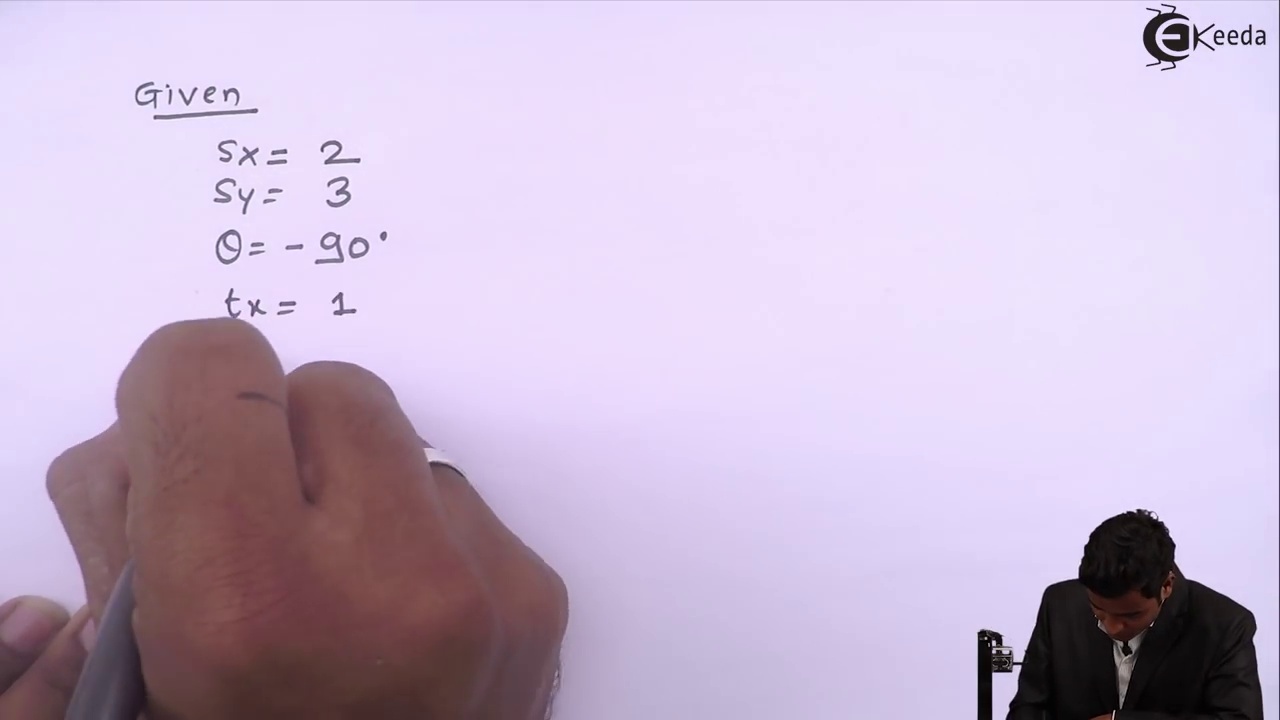 EKeeda
Given
Sx = 2
Sy = 3
θ = - 90°
tx = 1